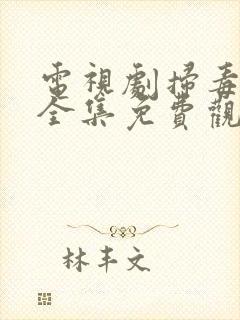 電視劇掃毒
全集免費觀
林丰文